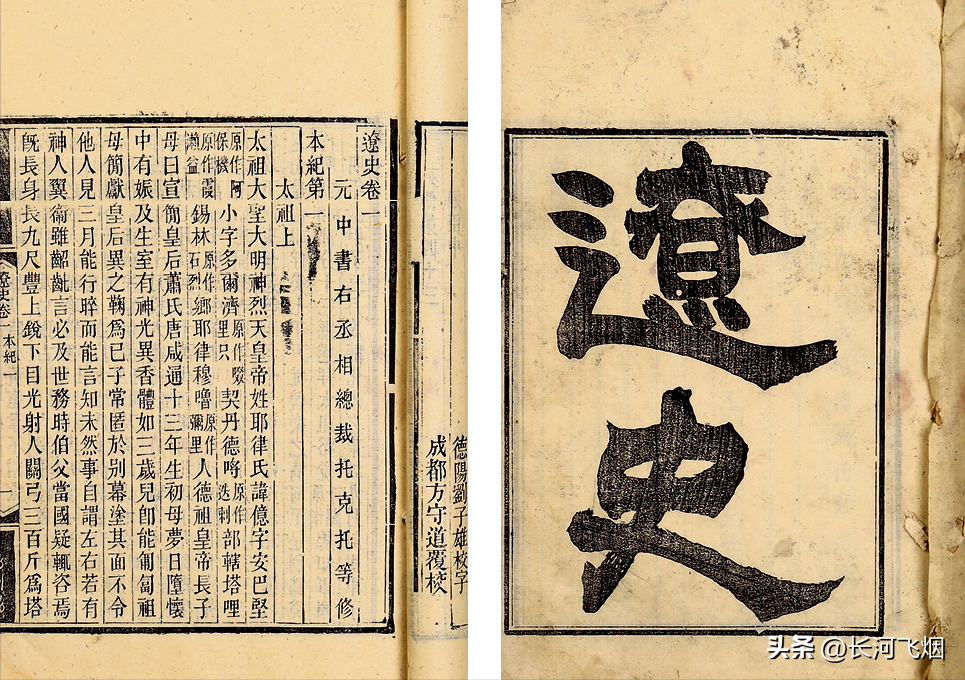 遼史
德陽劉子雄校字
成都方守道覆校
遼史卷一
元中書右丞相總裁托克托等修
本紀第一
太祖上
太祖大聖大明神烈天皇帝姓耶律氏諱億字安巴堅
原作阿保機小字多爾濟原作啜里只契丹德哷原作迭剌部轄塔哩
原作霞瀨益錫林原作石烈鄉耶律穆嚕原作彌里人德祖皇帝長子
母曰宣簡皇后蕭氏唐咸通十三年生初母夢日墮懷
中有娠及生室有神光異香體如三歲兒卽能匍匐祖
母簡獻皇后異之鞠爲已子常匿於別幕塗其面不令
他人見三月能行晬而能言知未然事自謂左右若有
神人翼衞雖齠齔言必及世務時伯父當國疑輒咨焉
旣長身長九尺豐上銳下目光射人關弓三百斤爲塔
遼史卷一 本紀一
头条 @长河飞烟